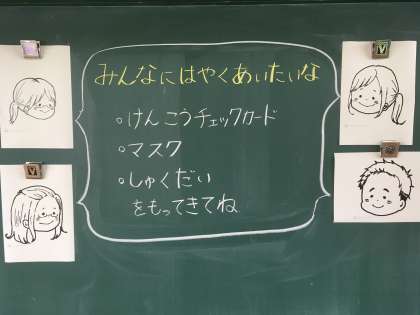 みんなにはやくあいたいな
・けんこうチェックカード
・マスク
・しゅくだい
をもってきてね